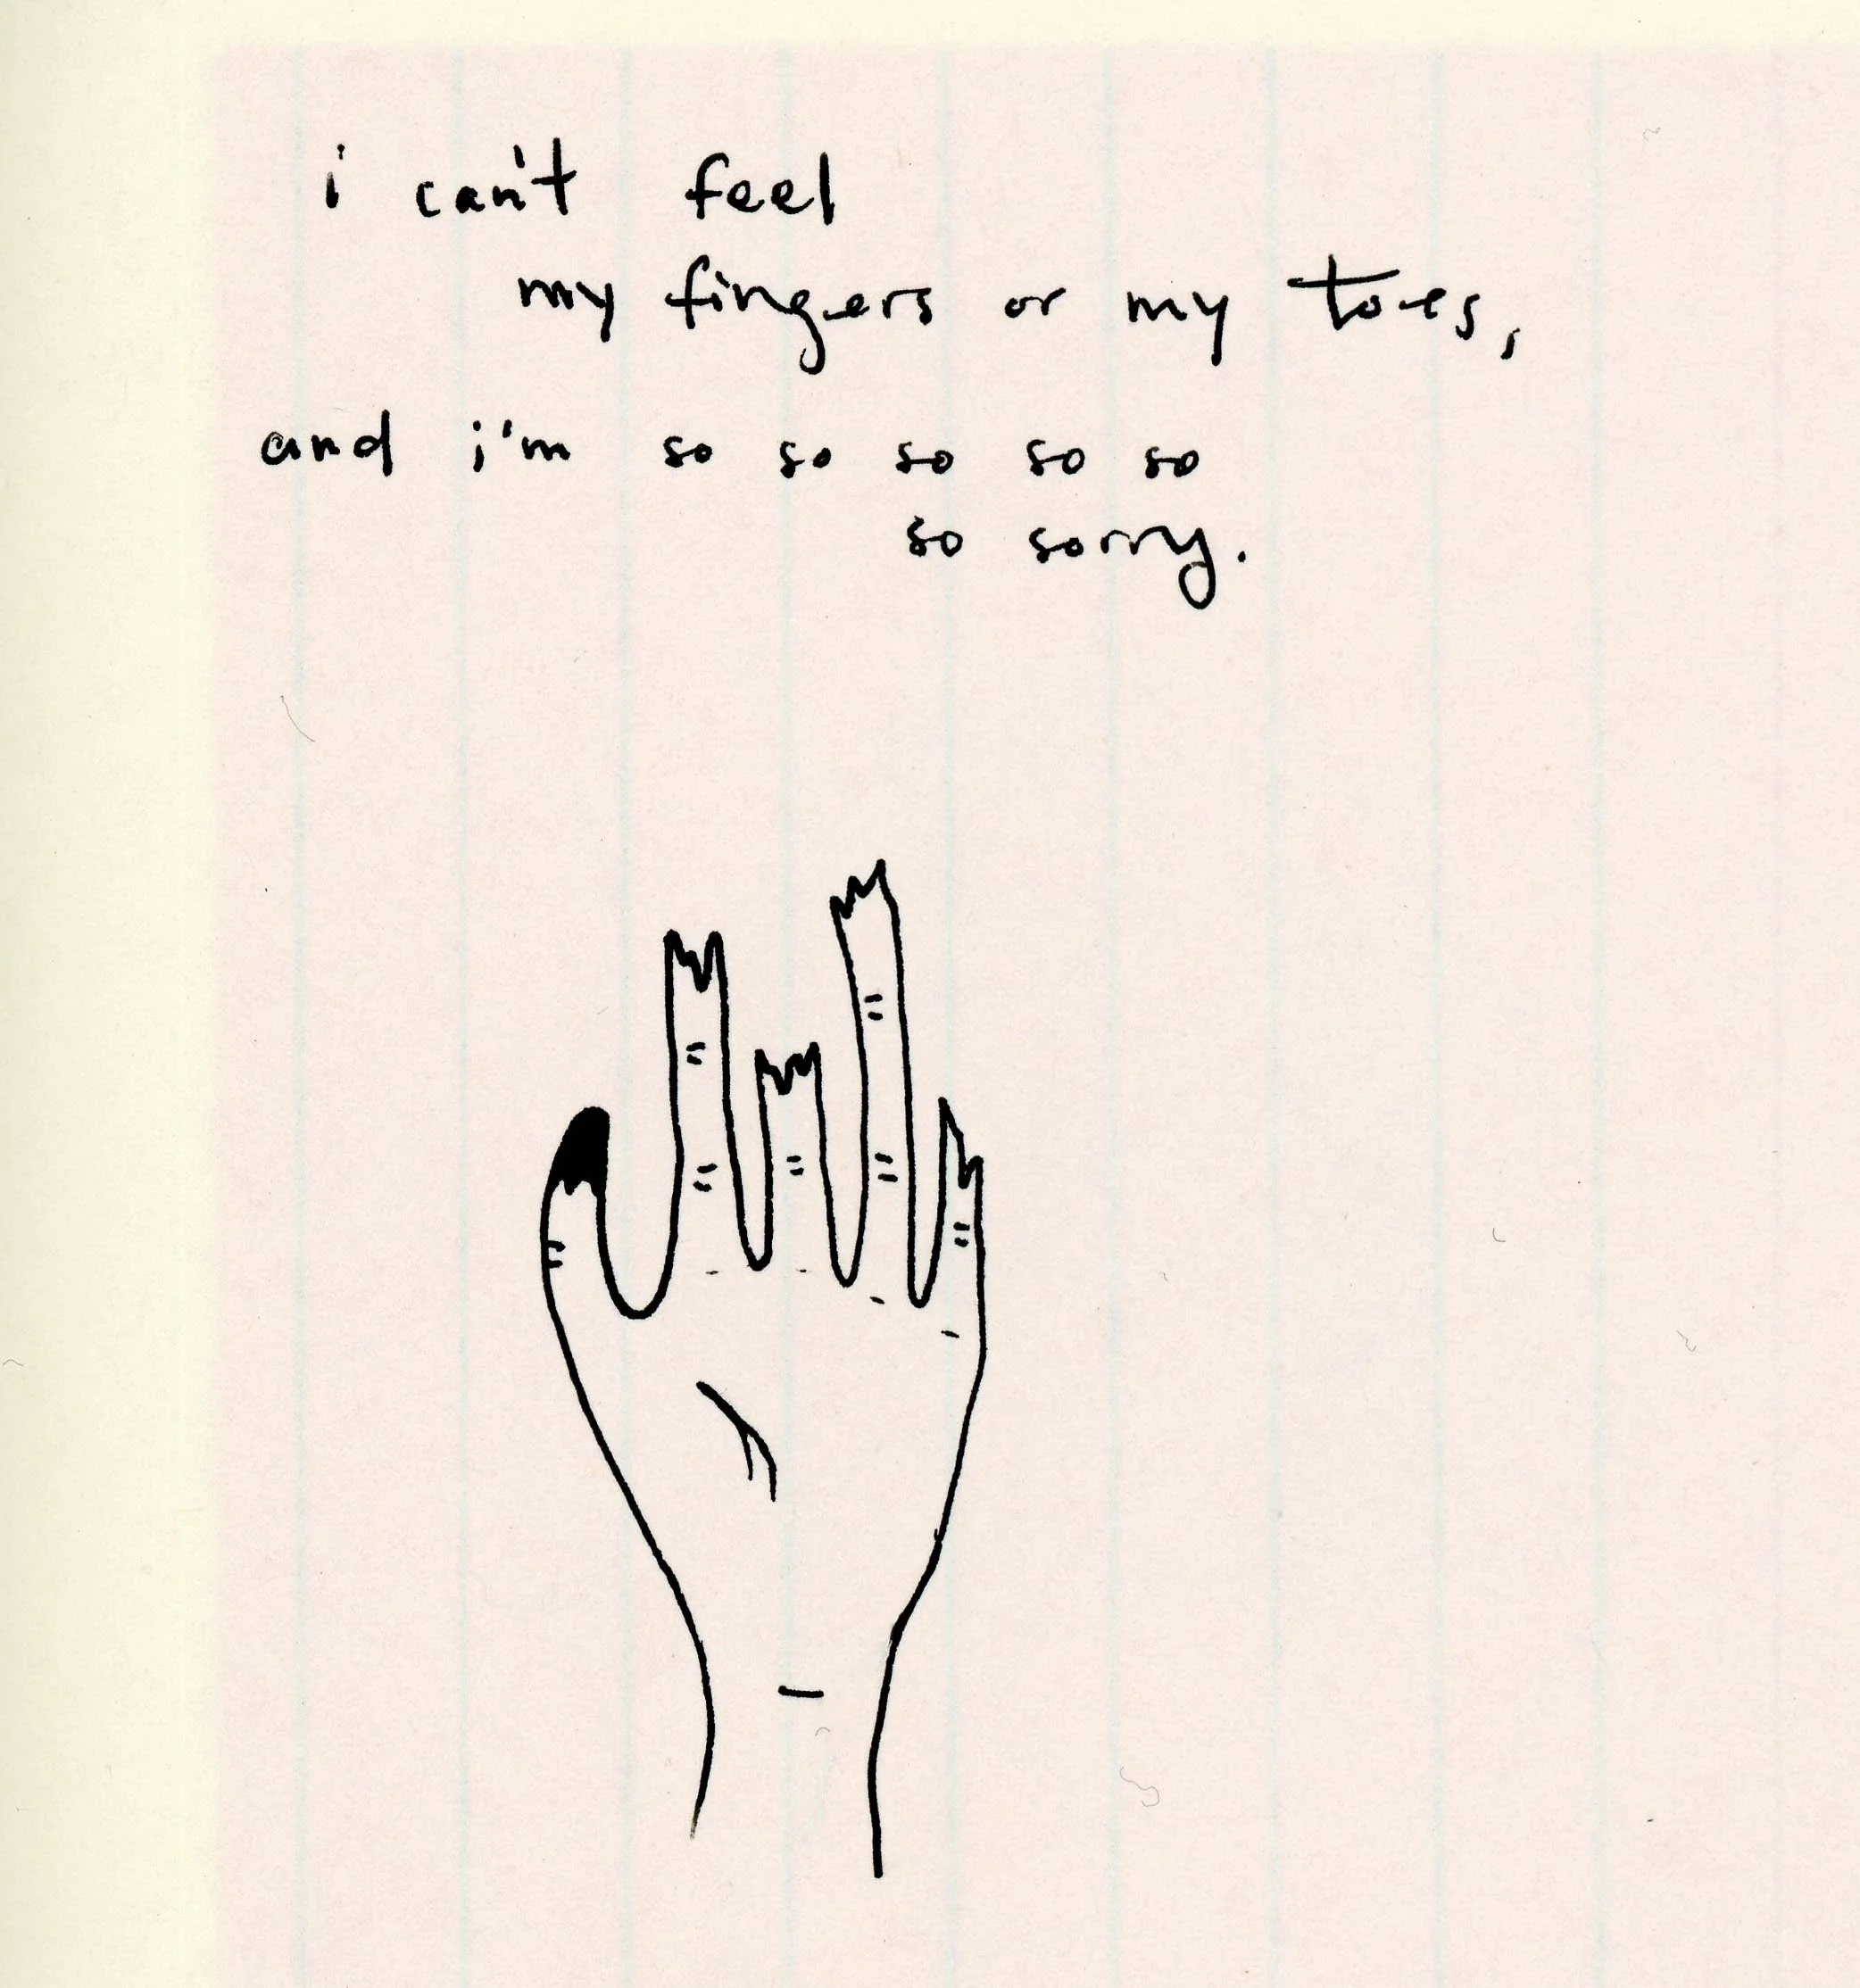 i can't feel
my fingers or my toes,
and i'm so so so so so
so sorry.